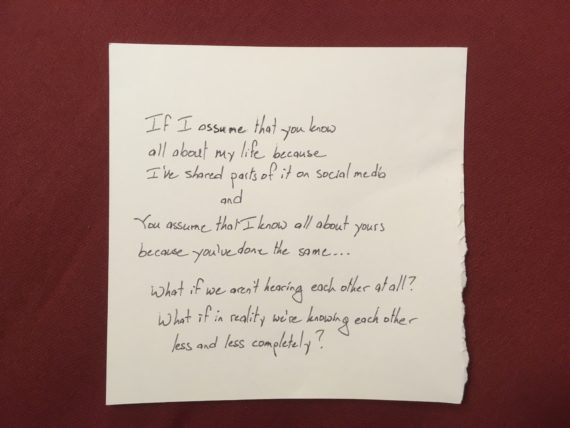 If I assume that you know
all about my life because
I've shared parts of it on social media
and
You assume that I know all about yours
because you've done the same...
What if we aren't hearing each other at all?
What if in reality we're knowing each other
less and less completely?